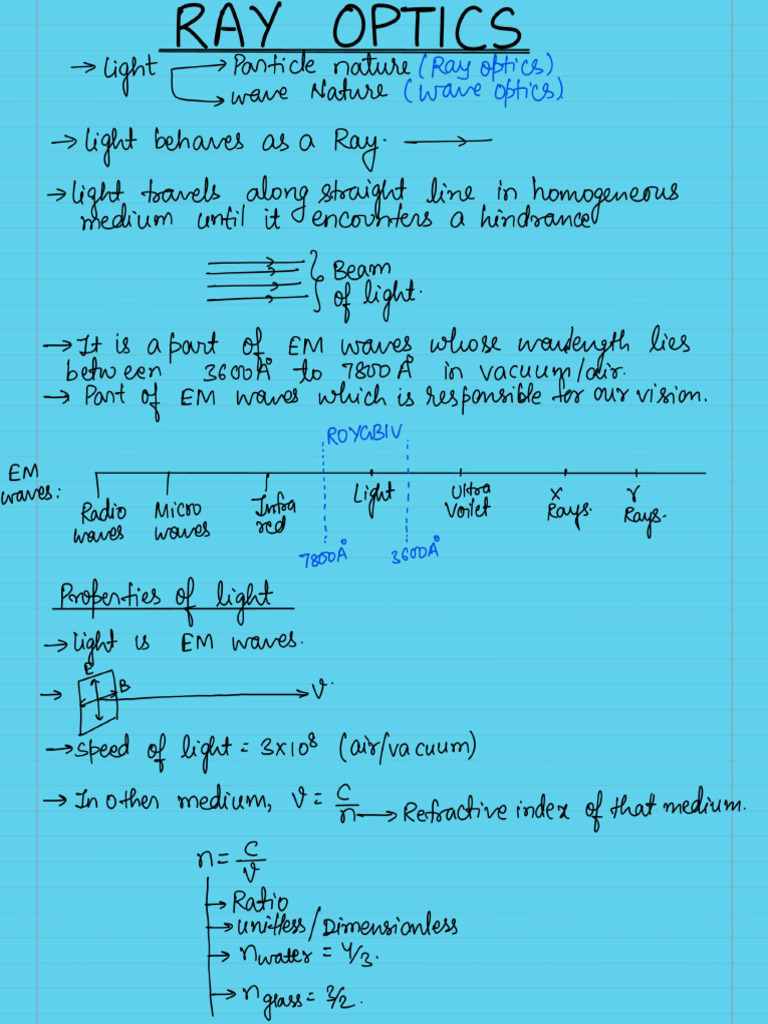 RAY OPTICS
→ Light → Particle nature (Ray optics)
→ wave Nature (wave optics)
→ Light behaves as a Ray. →
→ Light travels along straight line in homogeneous
medium until it encounters a hindrance
Beam
of light.
→ It is a part of EM waves whose wavelength lies
between 3600Å to 7800Å in vacuum/air.
→ Part of EM waves which is responsible for our vision.
ROYGBIV
EM
waves:
Radio
waves
Micro
waves
Infra
red
Light
Ultra
Voilet
X
Rays.
γ
Rays.
7800Å
3600Å
Properties of light
→ Light is EM waves.
→ E B V.
→ speed of light = 3×10⁸ (air/vacuum)
→ In other medium, V = C/n → Refractive index of that medium.
n = C/V
→ Ratio
→ unitless/Dimensionless
→ n water = 4/3.
→ n glass = 3/2.